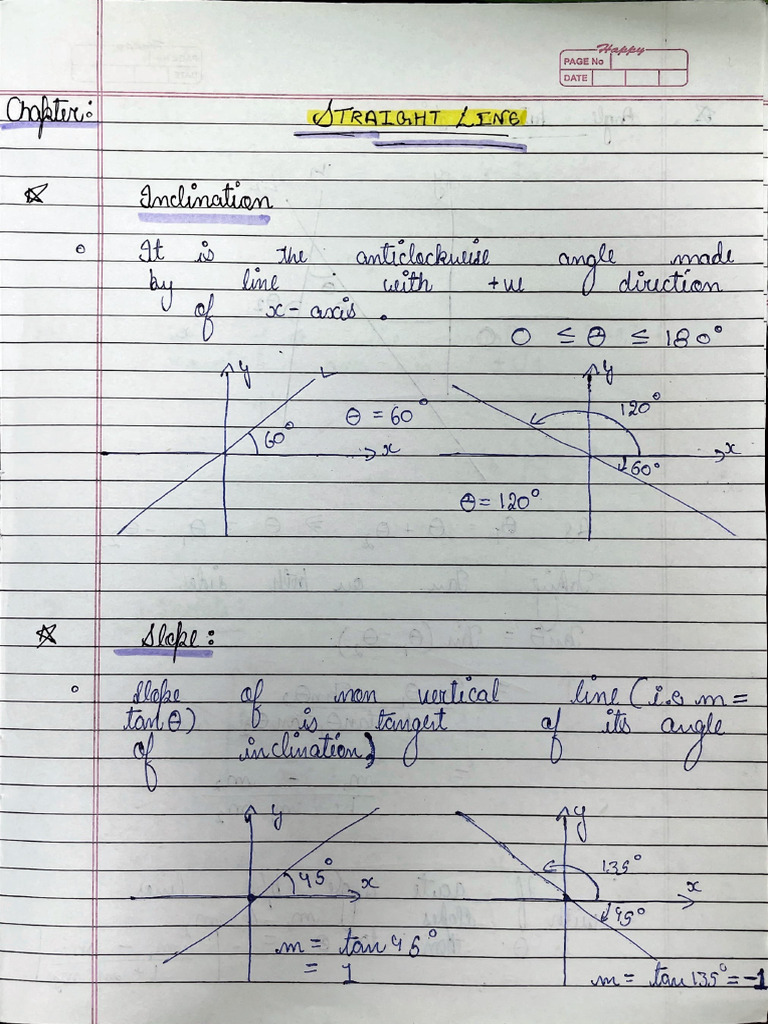 Happy
PAGE No
DATE
Chapter:
STRAIGHT LINE
Inclination
It is the anticlockwise angle made
by line with +ve direction
of x-axis.
0 ≤ θ ≤ 180°
y
L
θ = 60°
60°
x
y
120°
x
60°
θ = 120°
Slope:
Slope of non vertical line (i.e m =
tan θ) is tangent of its angle
of inclination)
y
45°
x
m = tan 45°
= 1
y
135°
x
45°
m = tan 135° = -1